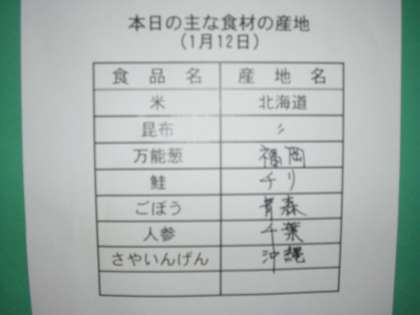 本日の主な食材の産地
(1月12日)
食品名 産地名
米 北海道
昆布 〃
万能葱 福岡
鮭 チリ
ごぼう 青森
人参 千葉
さやいんげん 沖縄